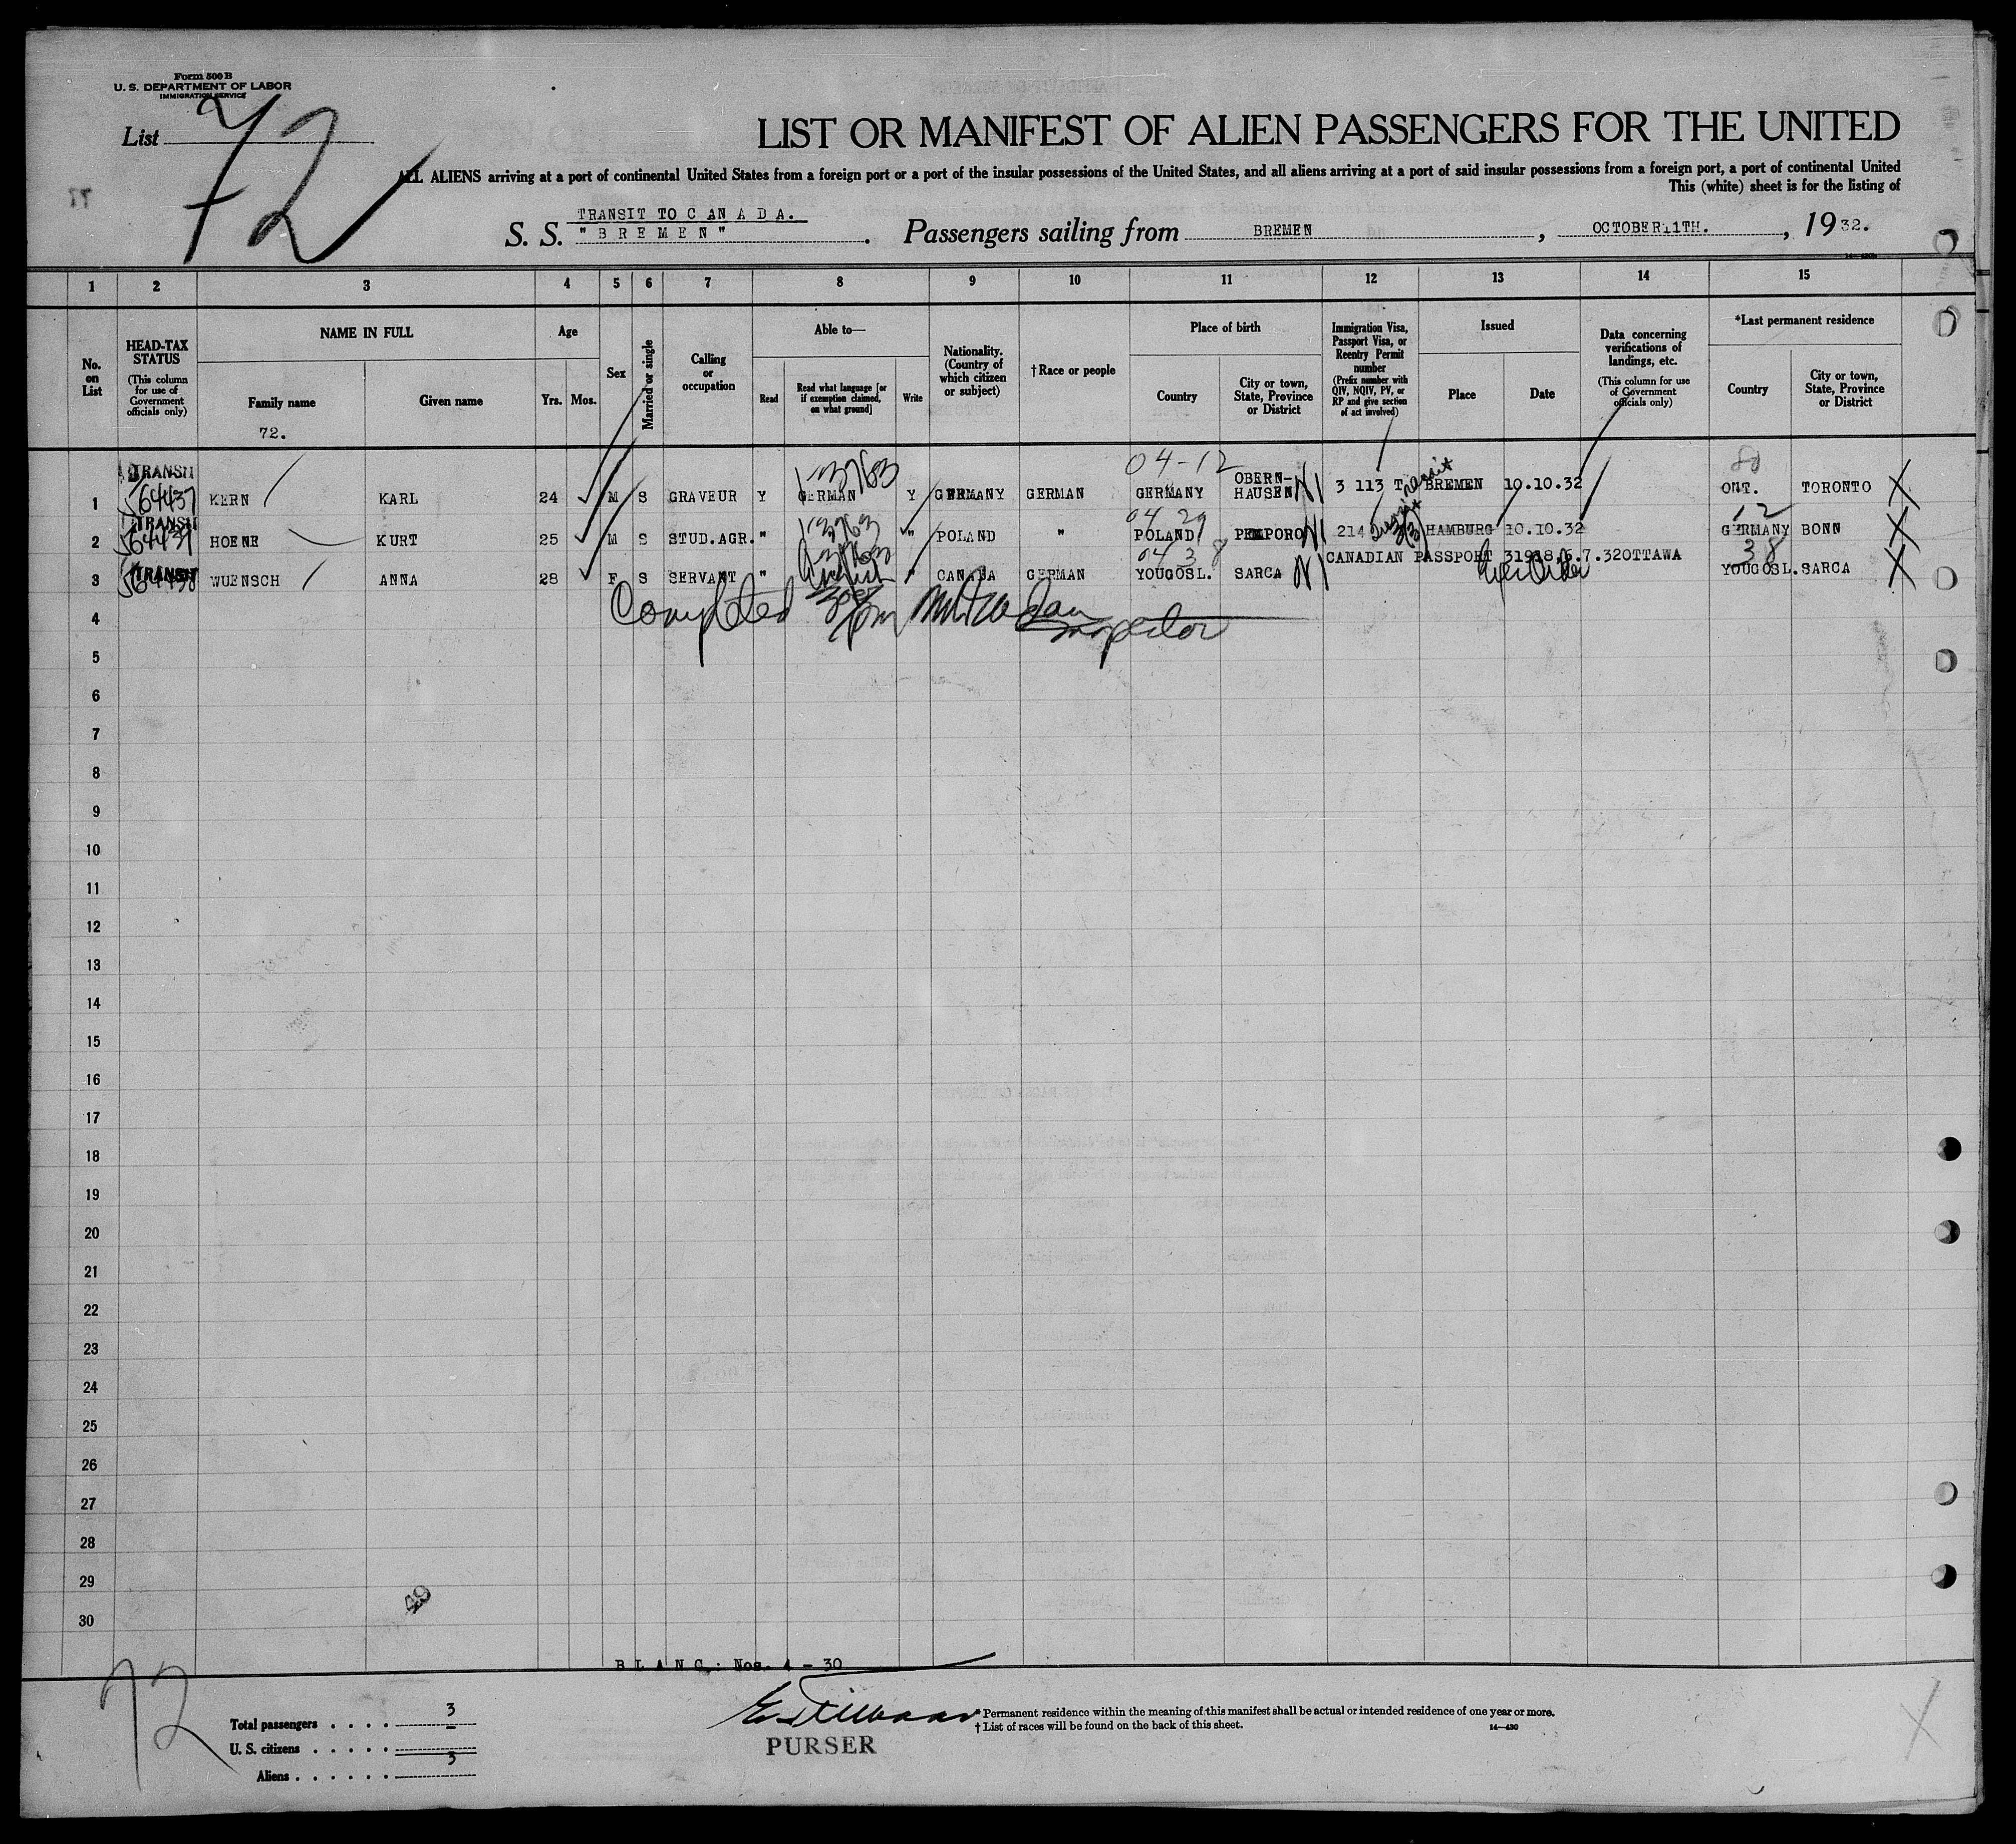 Form 500 B
U. S. DEPARTMENT OF LABOR
IMMIGRATION SERVICE
List 72
LIST OR MANIFEST OF ALIEN PASSENGERS FOR THE UNITED
ALL ALIENS arriving at a port of continental United States from a foreign port or a port of the insular possessions of the United States, and all aliens arriving at a port of said insular possessions from a foreign port, a port of continental United
This (white) sheet is for the listing of
TRANSIT TO C AN A D A.
S. S. "BREMEN". Passengers sailing from BREMEN, OCTOBER 11TH., 1932.
1 2 3 4 5 6 7 8 9 10 11 12 13 14 15
No. on List
HEAD-TAX STATUS
(This column for use of Government officials only)
NAME IN FULL
Family name
Given name
72.
Age
Yrs. Mos.
Sex
Married or single
Calling or occupation
Able to—
Read
Read what language [or if exemption claimed, on what ground]
Write
Nationality. (Country of which citizen or subject)
†Race or people
Place of birth
Country
City or town, State, Province or District
Immigration Visa, Passport Visa, or Reentry Permit number
(Prefix number with QIV, NQIV, PV, or RP and give section of act involved)
Issued
Place
Date
Data concerning verifications of landings, etc.
(This column for use of Government officials only)
*Last permanent residence
Country
City or town, State, Province or District
TRANSIT 04-12 80
1 564437 KERN KARL 24 M S GRAVEUR Y GERMAN Y GERMANY GERMAN GERMANY OBERN-HAUSEN 3 113 T Transit BREMEN 10.10.32 ONT. TORONTO X
TRANSIT 04 29 12
2 HOENE KURT 25 M S STUD.AGR. " " POLAND " POLAND 214 Transit HAMBURG 10.10.32 GERMANY BONN X
TRANSIT 04 3 8 CANADIAN PASSPORT .7.32OTTAWA 38
3 564438 WUENSCH ANNA 28 F S SERVANT " " CANADA GERMAN YOUGOSL. SARCA YOUGOSL. SARCA X
Completed
Inspector
4
5
6
7
8
9
10
11
12
13
14
15
16
17
18
19
20
21
22
23
24
25
26
27
28
29
30
49
B L A N C.: Nos. 4 - 30
72
Total passengers . . . . 3
U. S. citizens . . . . . —
Aliens . . . . . . 3
PURSER
* Permanent residence within the meaning of this manifest shall be actual or intended residence of one year or more.
† List of races will be found on the back of this sheet.
14—430